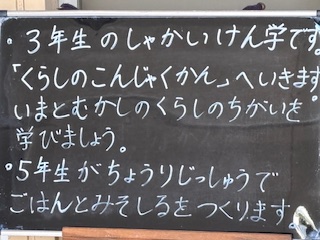 ・3年生のしゃかいけん学です。
「くらしのこんじゃくかん」へいきます
いまとむかしのくらしのちがいを
学びましょう。
・5年生がちょうりじっしゅうで
ごはんとみそしるをつくります。